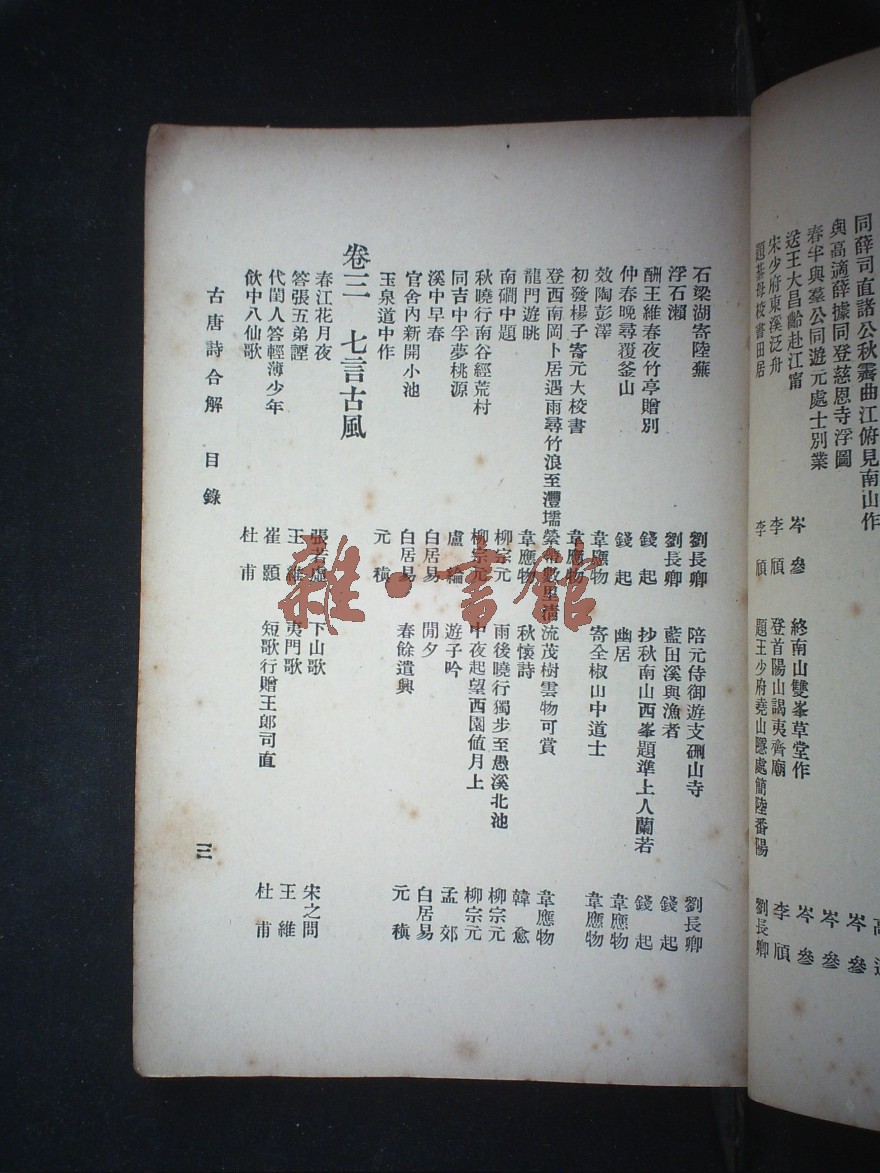 同薛司直諸公秋霽曲江俯見南山作
與高適薛據同登慈恩寺浮圖 岑參
春半與羣公同遊元處士別業 岑參
送王大昌齡赴江甯 岑參 終南山雙峯草堂作 岑參
宋少府東溪泛舟 李頎 登首陽山謁夷齊廟 李頎
題綦母校書田居 李頎 題王少府堯山隱處簡陸番陽 劉長卿
石梁湖寄陸蕪 劉長卿 陪元侍御遊支硎山寺 劉長卿
浮石瀨 劉長卿 藍田溪與漁者 錢起
酬王維春夜竹亭贈別 錢起 抄秋南山西峯題準上人蘭若 錢起
仲春晚尋覆釜山 錢起 幽居 韋應物
效陶彭澤 韋應物 寄全椒山中道士 韋應物
初發楊子寄元大校書 韋應物
登西南岡卜居遇雨尋竹浪至灃壖縈帶數里清流茂樹雲物可賞 韋應物
龍門遊眺 韋應物 秋懷詩 韓愈
南磵中題 柳宗元 雨後曉行獨步至愚溪北池 柳宗元
秋曉行南谷經荒村 柳宗元 中夜起望西園值月上 柳宗元
同吉中孚夢桃源 盧綸 遊子吟 孟郊
溪中早春 白居易 閒夕 白居易
官舍內新開小池 白居易 春餘遣興 元稹
玉泉道中作 元稹
卷三 七言古風
春江花月夜 張若虛 下山歌 宋之問
答張五弟諲 王維 夷門歌 王維
代閨人答輕薄少年 崔顥 短歌行贈王郎司直 杜甫
飲中八仙歌 杜甫
古唐詩合解 目錄
三
雜·書館